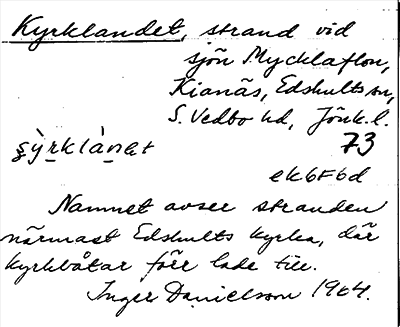 Kyrklandet, strand vid
sjön Mycklaflon,
Kianäs, Edshults sn,
S. Vedbo hd, Jönk. l.
73
ek6F6d
Namnet avser stranden
närmast Edshults kyrka, där
kyrkbåtar förr lade till.
Inger Danielsson 1964.